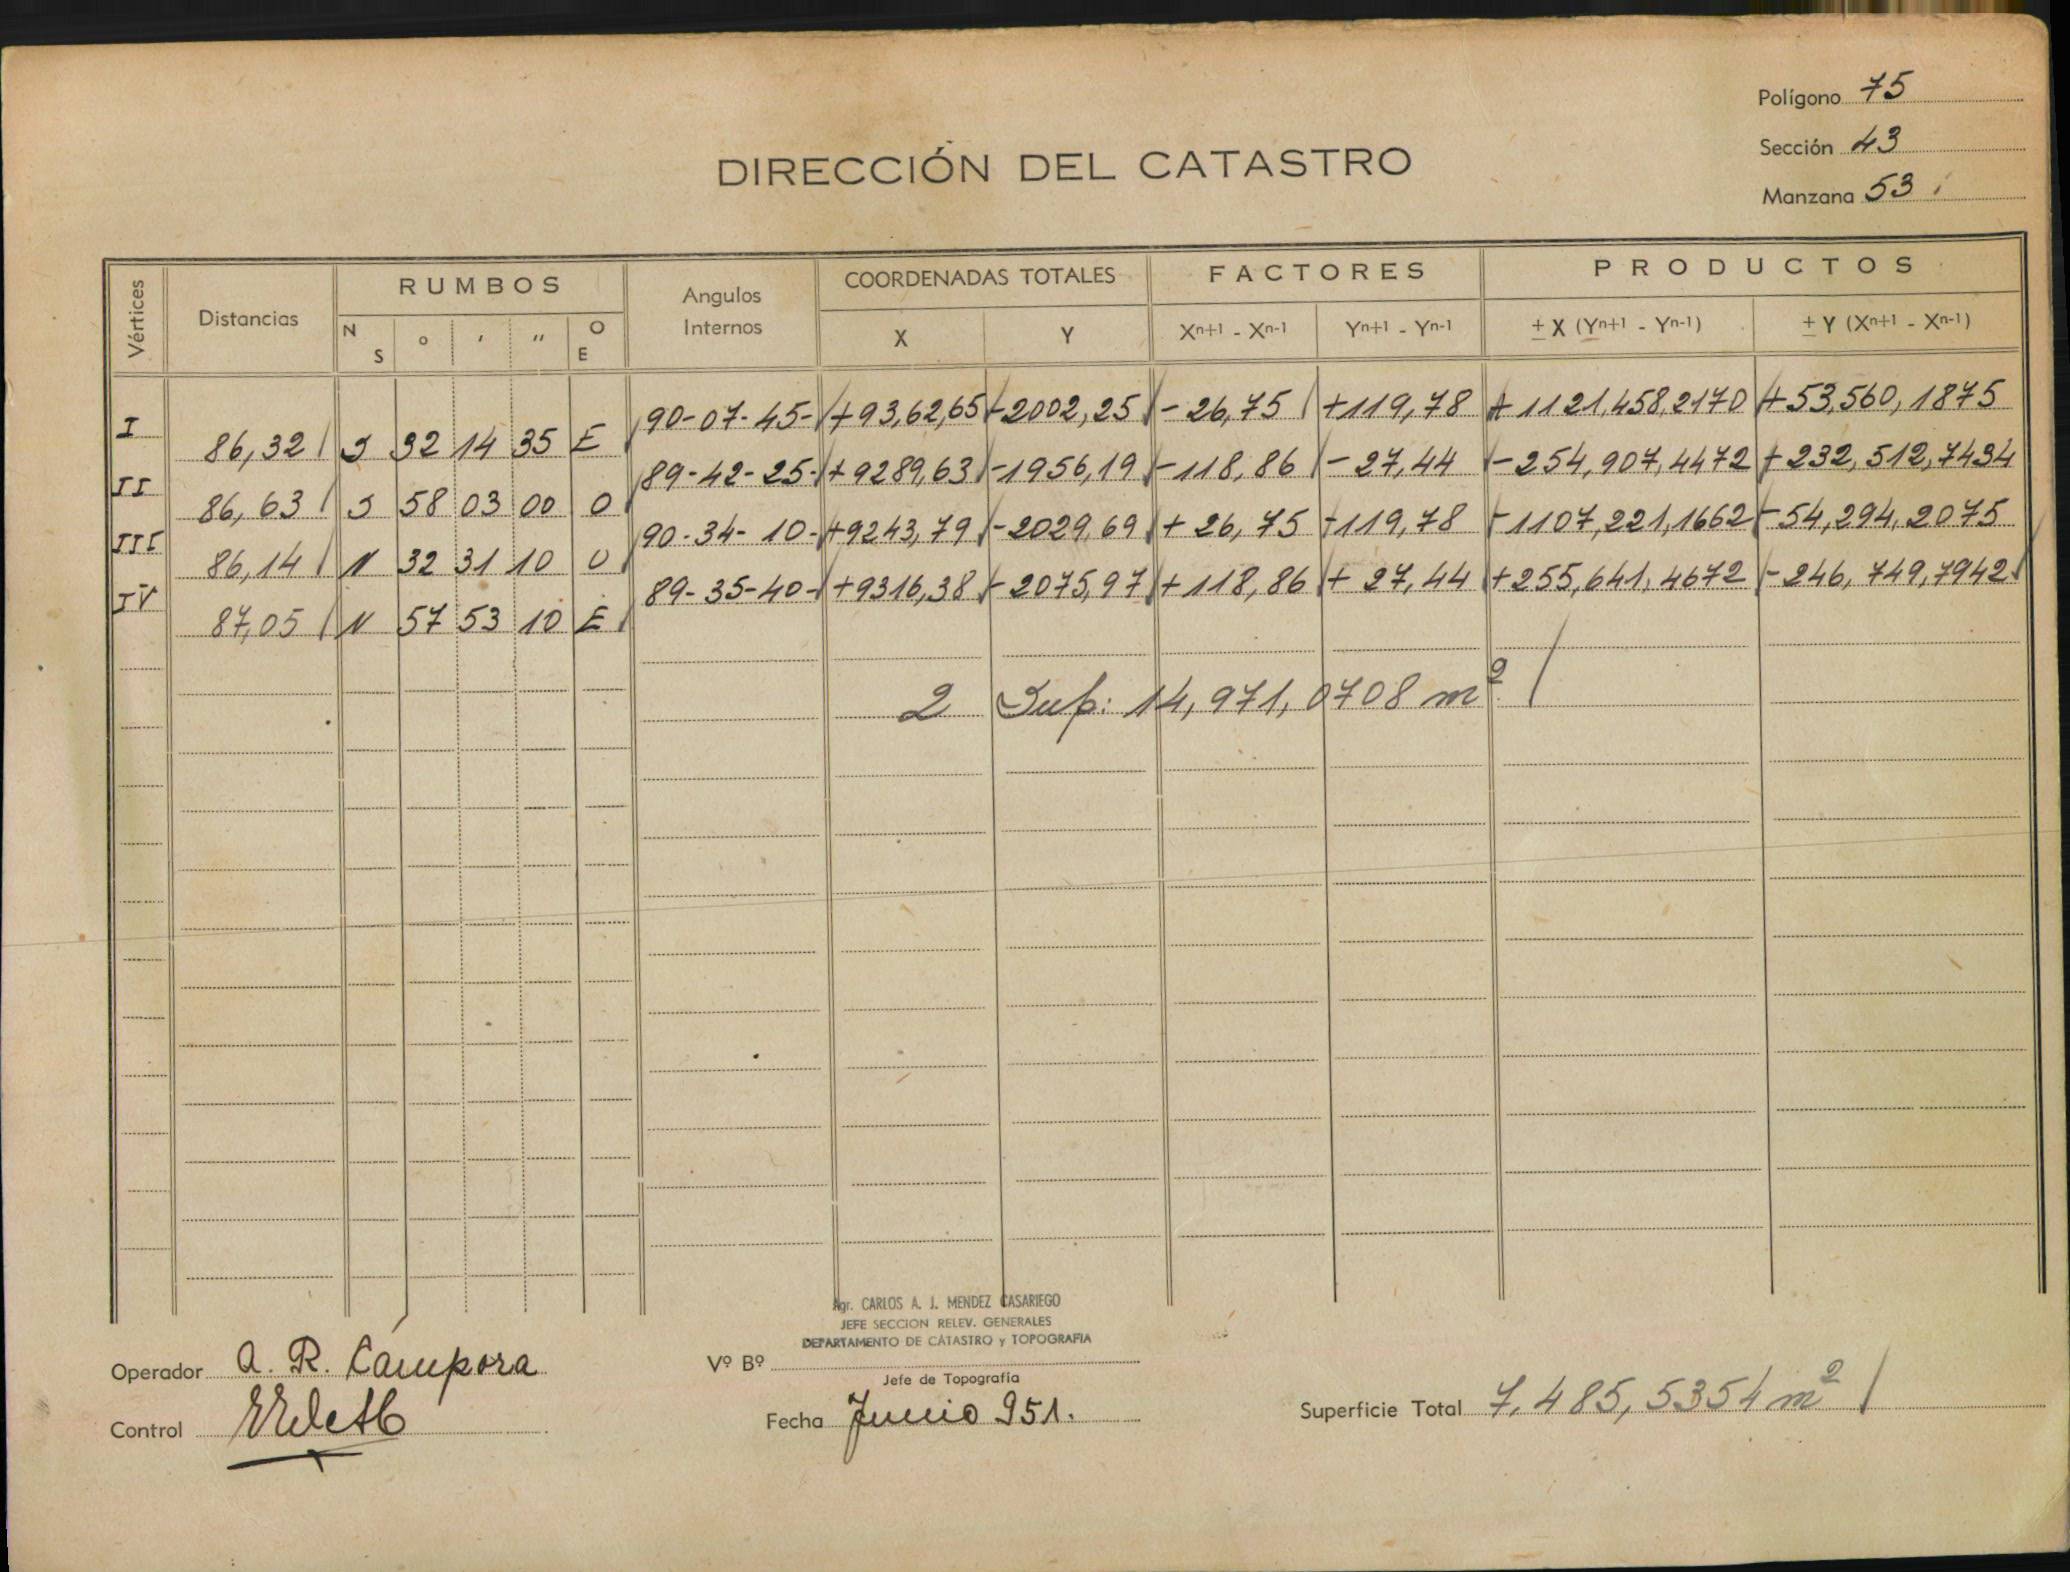 Polígono 75
Sección 43
Manzana 53
DIRECCIÓN DEL CATASTRO
Vértices Distancias RUMBOS Angulos Internos COORDENADAS TOTALES FACTORES PRODUCTOS
N S ° ' " O E X Y Xn+1 - Xn-1 Yn+1 - Yn-1 ± X (Yn+1 - Yn-1) ± Y (Xn+1 - Xn-1)
I 90-07-45- +93,62,65 -2002,25 - 26,75 +119,78 + 1121,458,2170 +53,560,1875
86,32 S 32 14 35 E
II 89-42-25- +9289,63 -1956,19 -118,86 - 27,44 -254,907,4472 +232,512,7434
86,63 S 58 03 00 O
III 90-34-10- +9243,79 -2029,69 + 26,75 -119,78 -1107,221,1662 -54,294,2075
86,14 N 32 31 10 O
IV 89-35-40- +9316,38 -2075,97 +118,86 + 27,44 +255,641,4672 -246,749,7942
87,05 N 57 53 10 E
2 Sup: 14,971,0708 m²
Agr. CARLOS A. J. MENDEZ CASARIEGO
JEFE SECCION RELEV. GENERALES
DEPARTAMENTO DE CATASTRO y TOPOGRAFIA
Operador A. R. Cámpora
Vº Bº
Jefe de Topografía
Control
Fecha Junio 951.
Superficie Total 7,485,5354 m²